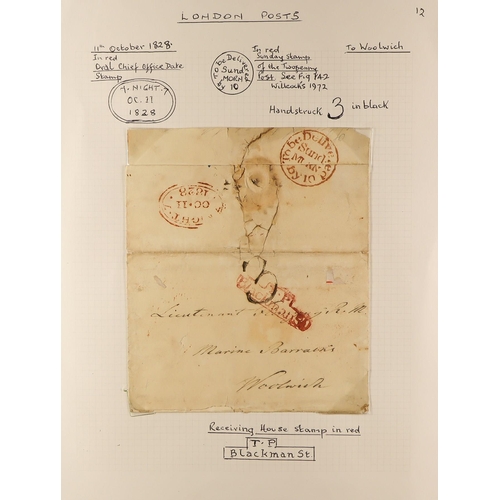 LONDON POSTS
12
11th October 1828.
In red
Oval Chief Office Date
Stamp
7. NIGHT. 7
OC. 11
1828
To be Delivered
Sund
MORN
by 10
In red
Sunday stamp
of the Twopenny
Post See Fig 742
Willcocks 1972
To Woolwich
Handstruck 3 in black
To be Delivered
Sund
by 10
NIGHT
OC. 11
1828
T.P
Blackman St
Lieutenant R.M
Marine Barracks
Woolwich
Receiving House stamp in red
T. P
Blackman St.